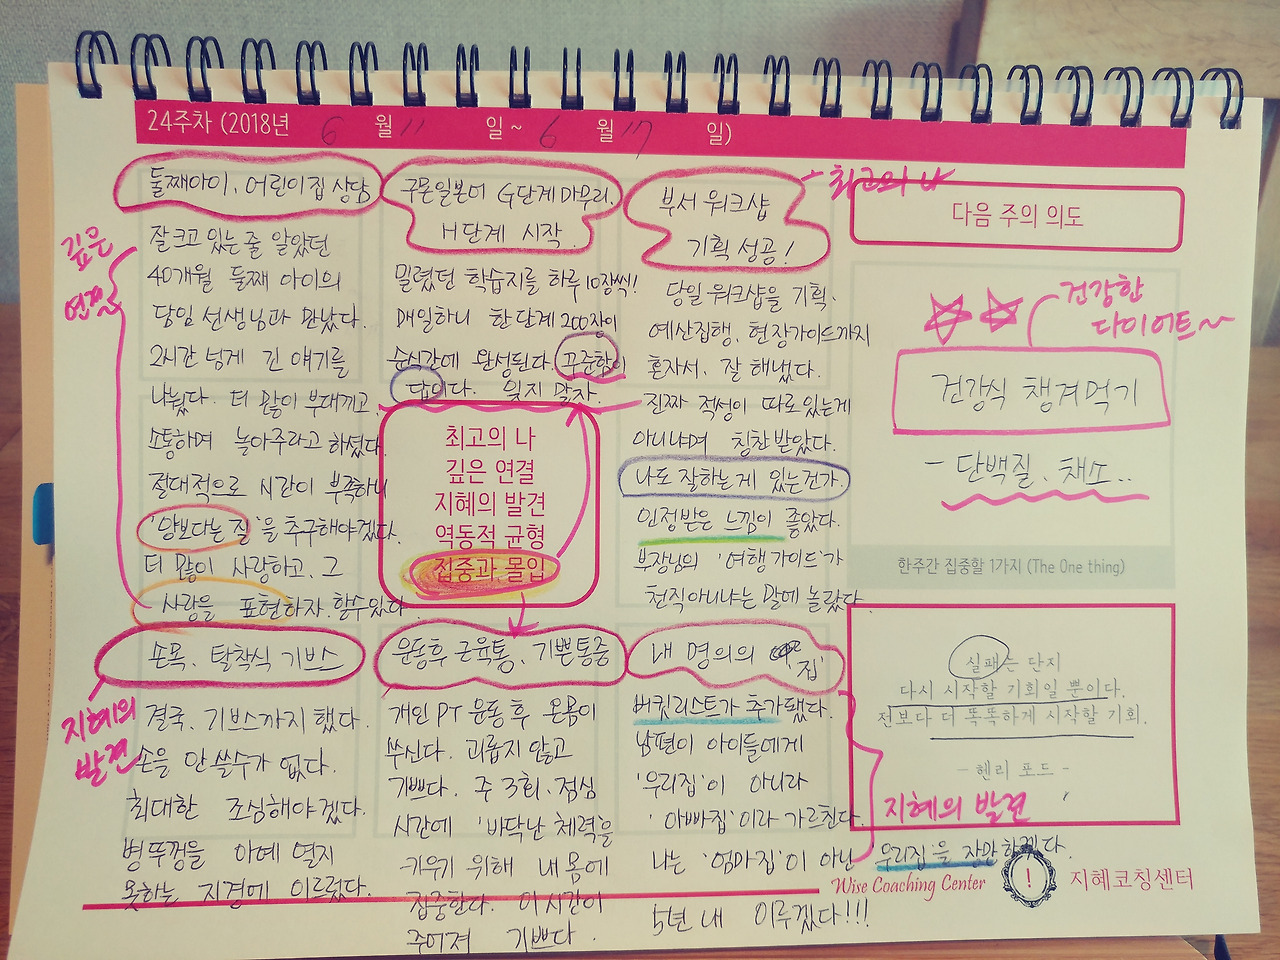 24주차 (2018년 6월 11일 ~ 6월 17일)
둘째아이, 어린이집 상담
깊은
연결
잘 크고 있는 줄 알았던
40개월 둘째 아이의
담임 선생님과 만났다.
2시간 넘게 긴 얘기를
나눴다. 더 많이 부대끼고,
소통하며 놀아주라고 하셨다.
절대적으로 시간이 부족하니
'양보다는 질'을 추구해야겠다.
더 많이 사랑하고, 그
사랑을 표현하자. 할수있다.
구몬일본어 G단계 마무리.
H단계 시작.
밀렸던 학습지를 하루 10장씩!
매일하니 한단계 200장이
순식간에 완성된다. 꾸준함이
답이다. 잊지 말자.
부서 워크샵
기획 성공!
최고의 나
당일 워크샵을 기획.
예산집행, 현장가이드까지
혼자서, 잘 해냈다.
진짜 적성이 따로 있는게
아니냐며 칭찬 받았다.
나도 잘하는게 있는건가.
인정받은 느낌이 좋았다.
부장님의 '여행 가이드'가
천직아니냐는 말에 놀랐다.
최고의 나
깊은 연결
지혜의 발견
역동적 균형
집중과 몰입
손목, 탈착식 기브스
지혜의
발견
결국, 기브스까지 했다.
손을 안 쓸수가 없다.
최대한 조심해야겠다.
병뚜껑을 아예 열지
못하는 지경에 이르렀다.
운동후 근육통, 기쁜 통증
개인 PT 운동 후 온몸이
쑤신다. 괴롭지 않고
기쁘다. 주 3회, 점심
시간에 '바닥난 체력'을
키우기 위해 내 몸에
집중한다. 이 시간이
주어져 기쁘다.
내 명의의 '집'
버킷리스트가 추가됐다.
남편이 아이들에게
'우리집'이 아니라
'아빠집'이라 가르친다.
나는 '엄마집'이 아닌 '우리집'을 장만하겠다.
5년 내 이루겠다!!!
지혜의 발견
다음 주의 의도
건강한
다이어트~
건강식 챙겨먹기
- 단백질, 채소..
한주간 집중할 1가지 (The One thing)
실패는 단지
다시 시작할 기회일 뿐이다.
전보다 더 똑똑하게 시작할 기회.
- 헨리 포드 -
Wise Coaching Center ! 지혜코칭센터